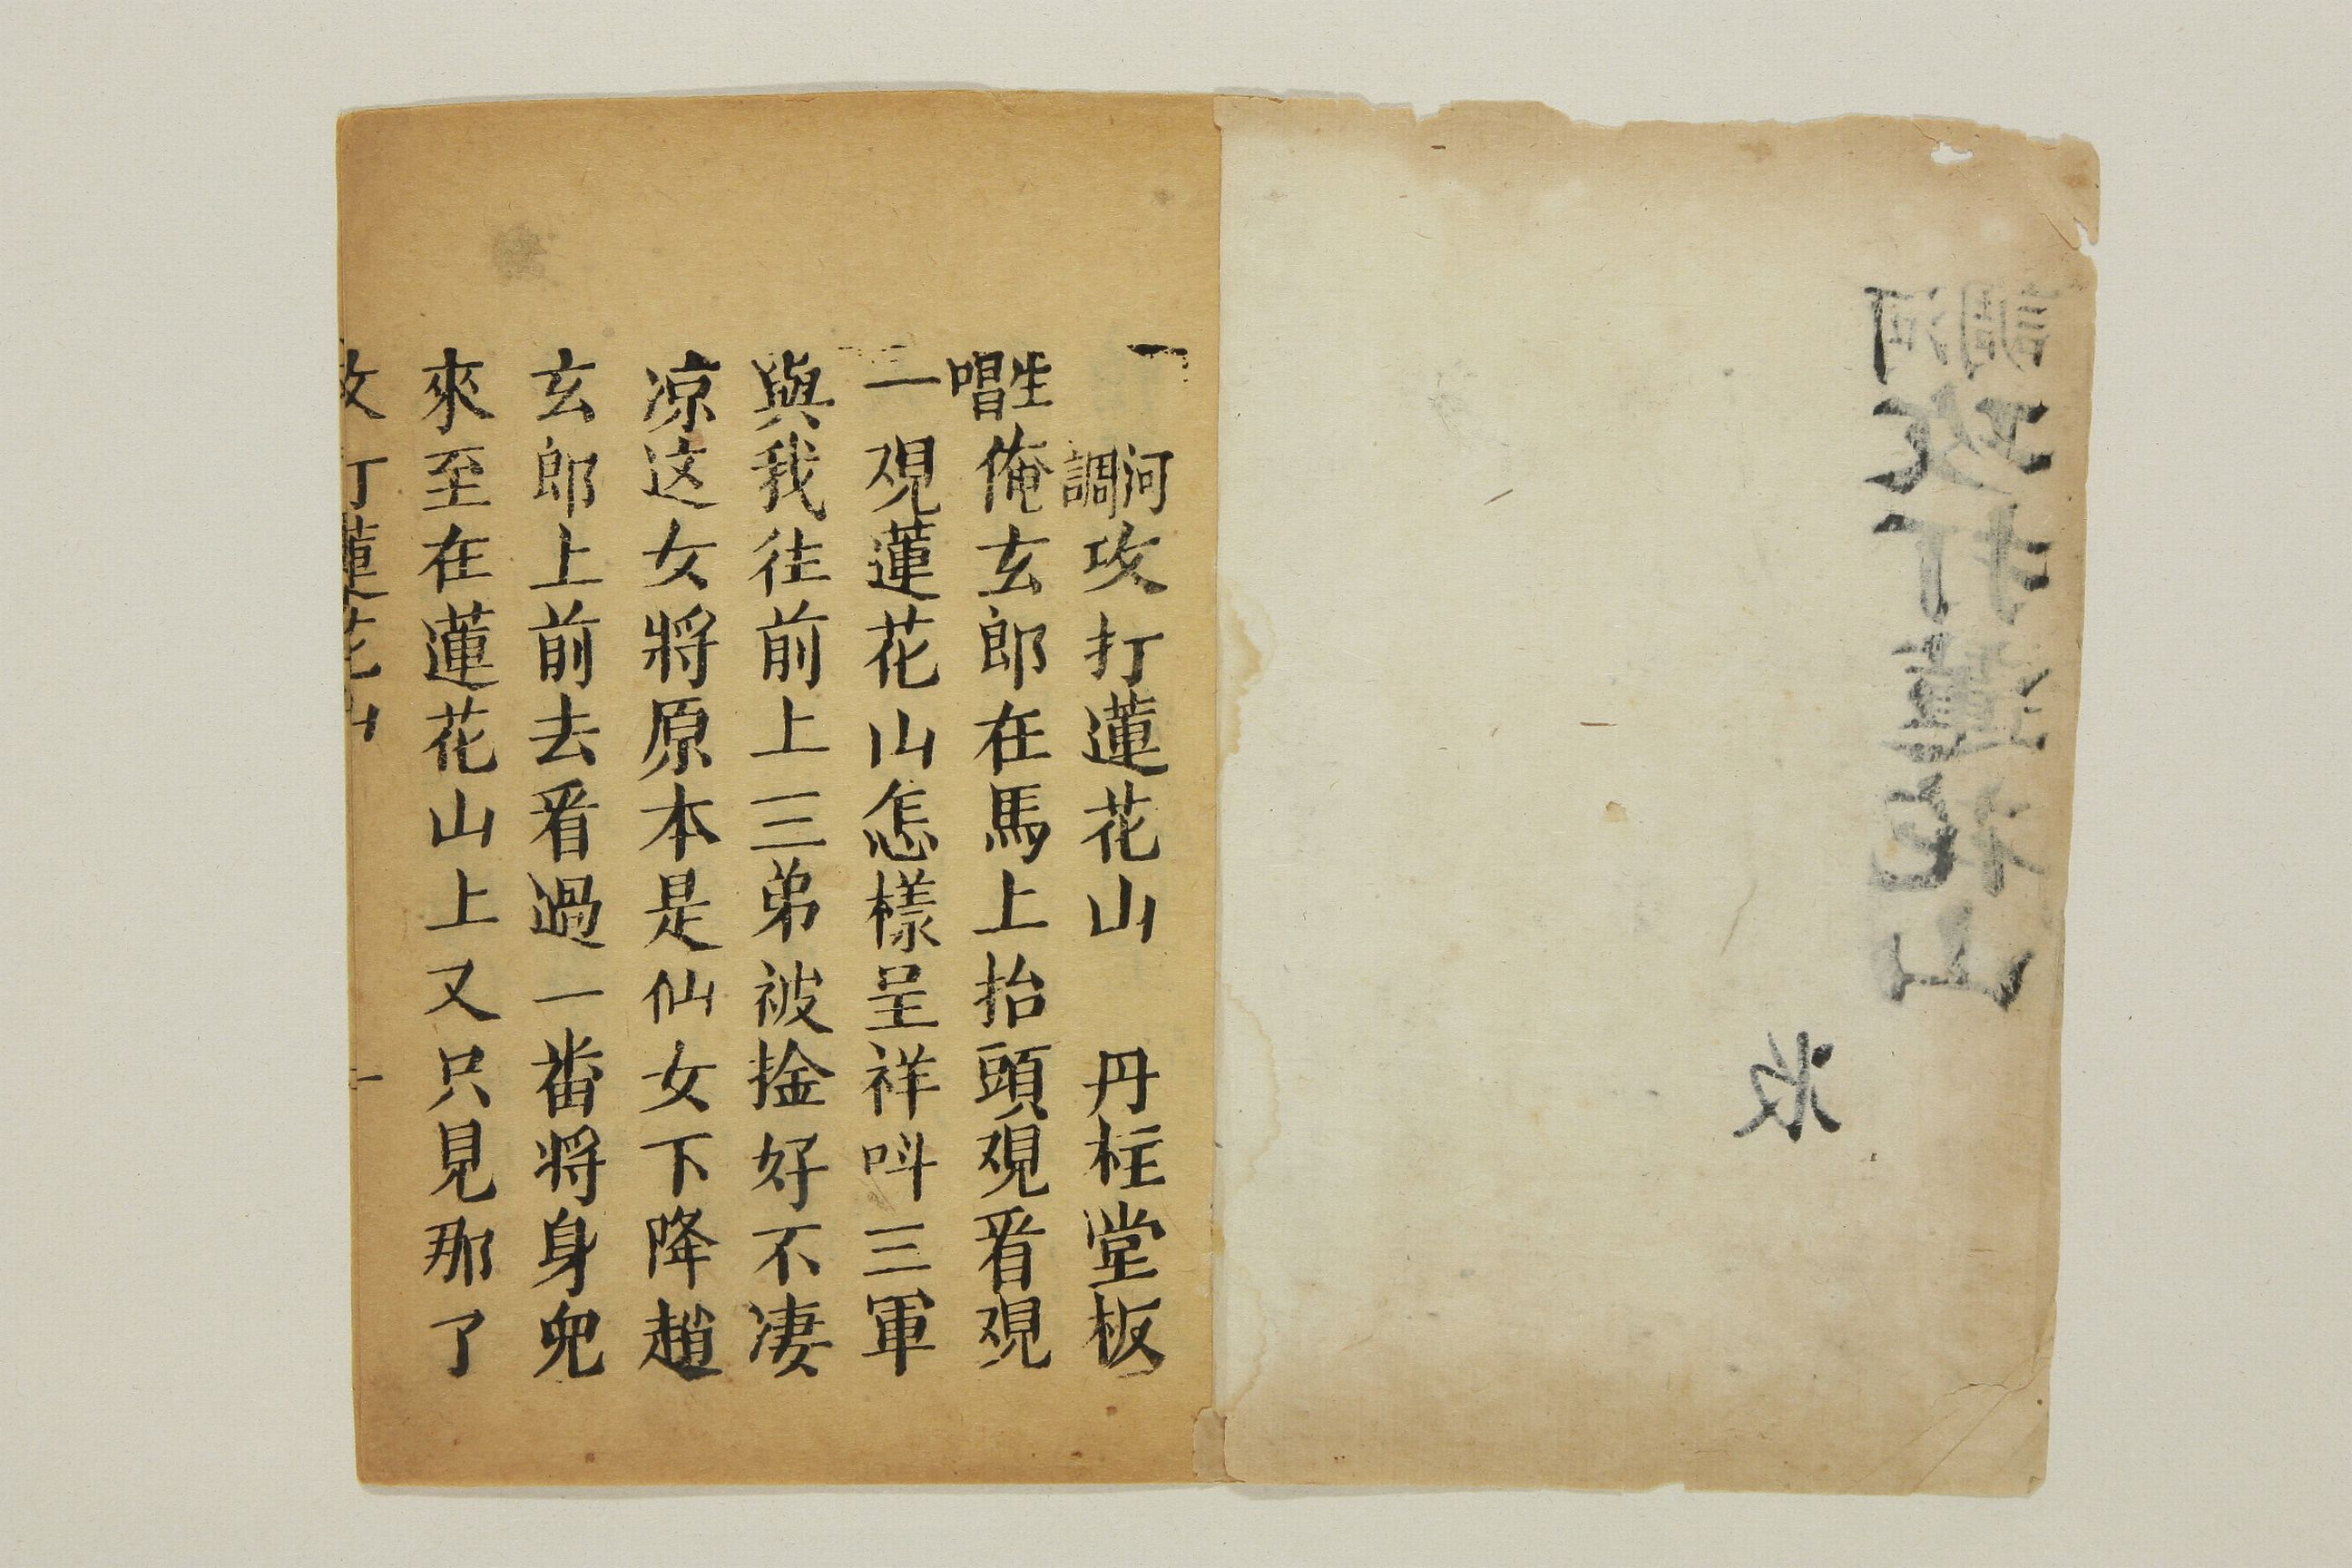 河調攻打蓮花山
收
河調攻打蓮花山 丹柱堂板
生唱俺玄郎在馬上抬頭观看观
一观蓮花山怎樣呈祥呌三軍
與我往前上三弟被擒好不凄
凉这女將原本是仙女下降趙
玄郎上前去看過一番將身兜
來至在蓮花山上又只見那了
攻打蓮花山 一